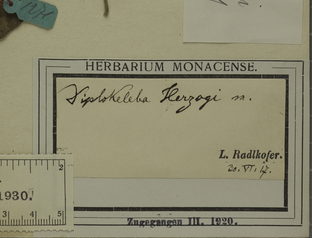 HERBARIUM MONACENSE.
Diplokeleba Herzogi m.
L. Radlkofer.
20. VI. 17.
1930.
3 4 5
Zugegangen III. 1920.